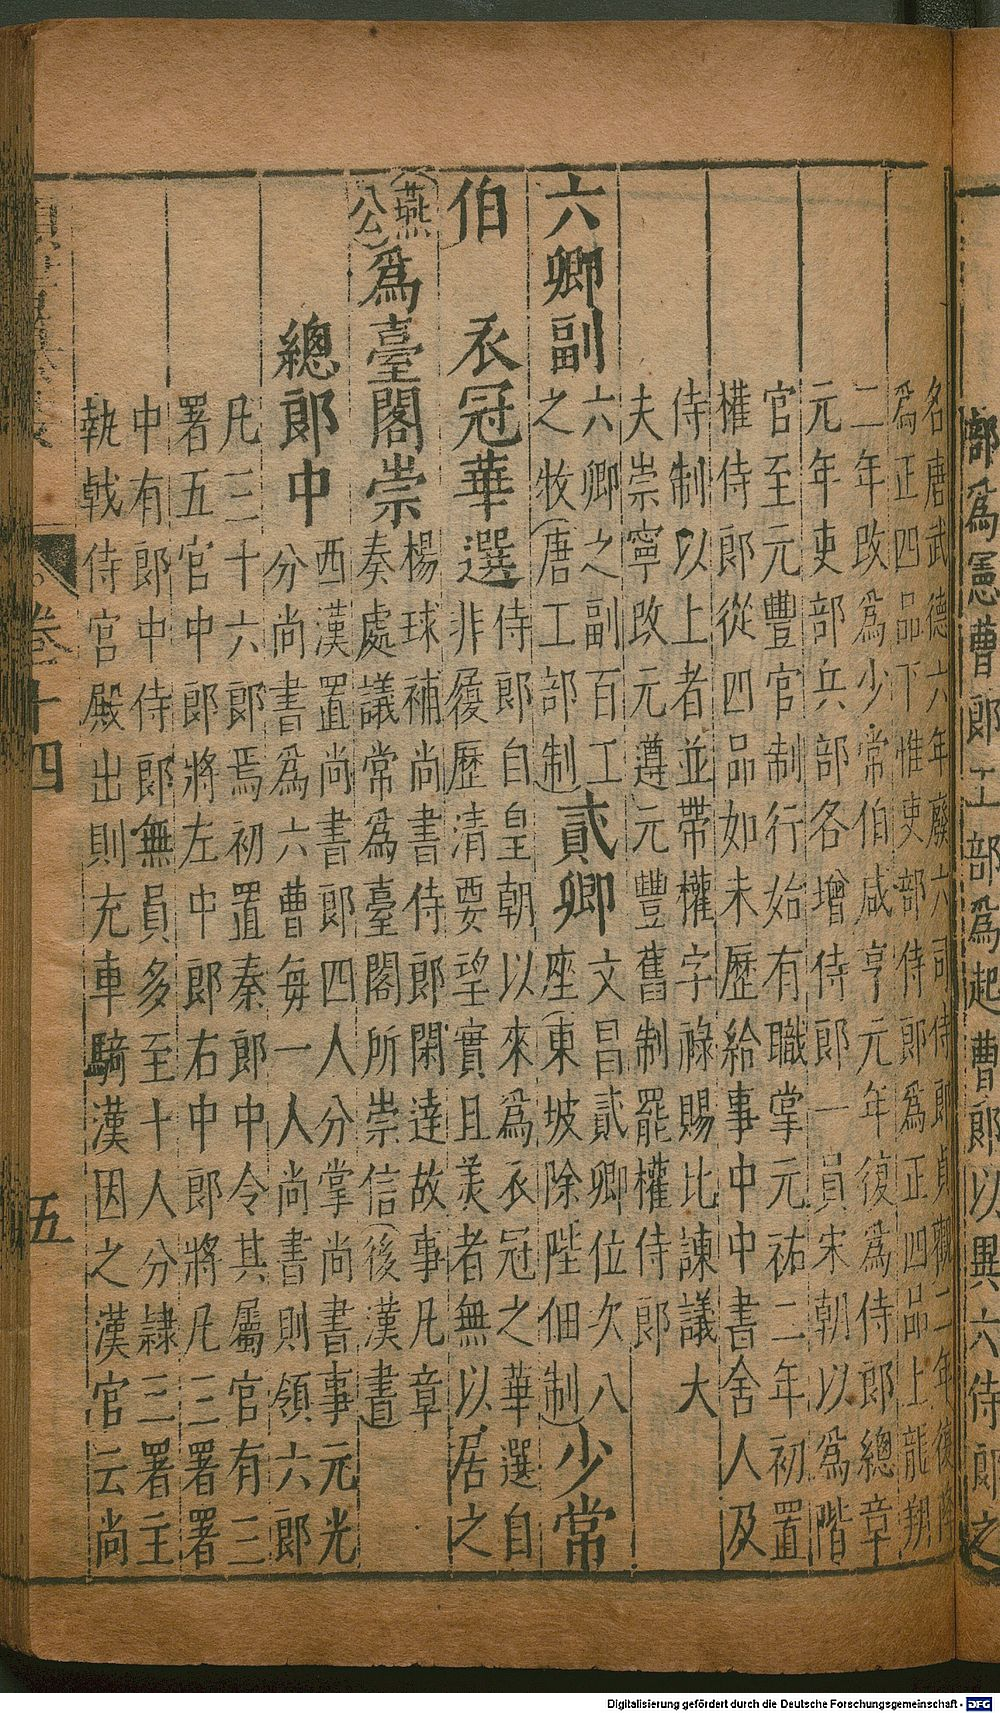 部爲憲曹郎工部爲起曹郎以異六侍郎之
名唐武德六年廢六司侍郎貞觀二年復隆
爲正四品下惟吏部侍郎爲正四品上龍朔
二年改爲少常伯咸亨元年復爲侍郎總章
元年吏部兵部各增侍郎一員宋朝以爲階
官至元豐官制行始有職掌元祐二年初置
權侍郎從四品如未歷給事中中書舍人及
侍制以上者並帶權字祿賜比諫議大
夫崇寧改元遵元豐舊制罷權侍郎
六卿副
六卿之副百工
之牧(唐工部制)
貳卿
文昌貳卿位次八
座(東坡除陛佃制)
少常
伯
衣冠華選
侍郎自皇朝以來爲衣冠之華選自
非履歷清要望實且羙者無以居之
(燕
公)
爲臺閣崇
楊球補尚書侍郎閑達故事凡章
奏處議常爲臺閣所崇信(後漢書)
總郎中
西漢置尚書郎四人分掌尚書事元光
分尚書爲六曹每一人尚書則領六郎
凡三十六郎焉初置秦郎中令其屬官有三
署五官中郎將左中郎右中郎將凡三署署
中有郎中侍郎無員多至十人分隸三署主
執戟侍宮殿出則充車騎漢因之漢官云尚
卷十四
五
Digitalisierung gefördert durch die Deutsche Forschungsgemeinschaft - DFG